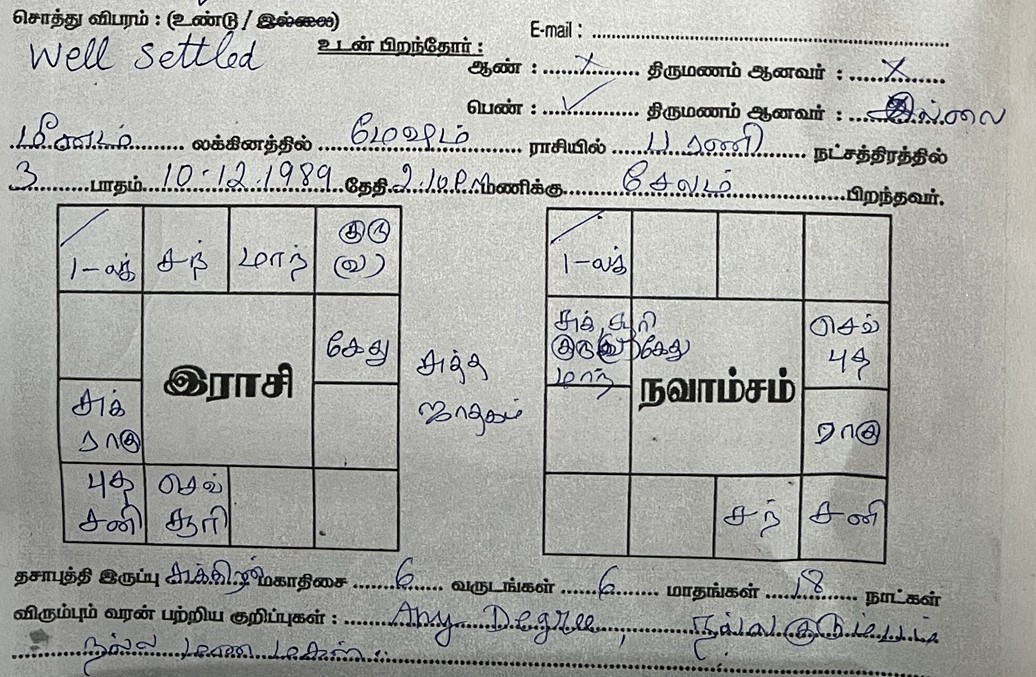 சொத்து விபரம் : (உண்டு / இல்லை)
E-mail :
Well settled
உடன் பிறந்தோர் :
ஆண் : X திருமணம் ஆனவர் : X
பெண் : ✓ திருமணம் ஆனவர் : இல்லை
மீனம் லக்கினத்தில் மேஷம் ராசியில் பரணி நட்சத்திரத்தில்
3 பாதம் 10.12.1989 தேதி 2.10 P.M மணிக்கு சேலம் பிறந்தவர்.
/ சந் மாந் குரு
1-லக் (வ)
கேது
இராசி
சுக்
ராகு
புத செவ்
சனி சூரி
சுத்த
ஜாதகம்
/
1-லக்
சுக், சூரி செவ்
குரு(வ) கேது புத
மாந்
நவாம்சம்
ராகு
சந் சனி
தசாபுத்தி இருப்பு சுக்கிரன் மகாதிசை 6 வருடங்கள் 6 மாதங்கள் 18 நாட்கள்
விரும்பும் வரன் பற்றிய குறிப்புகள் : Any Degree, நல்ல குடும்பம்
நல்ல மண மகன்